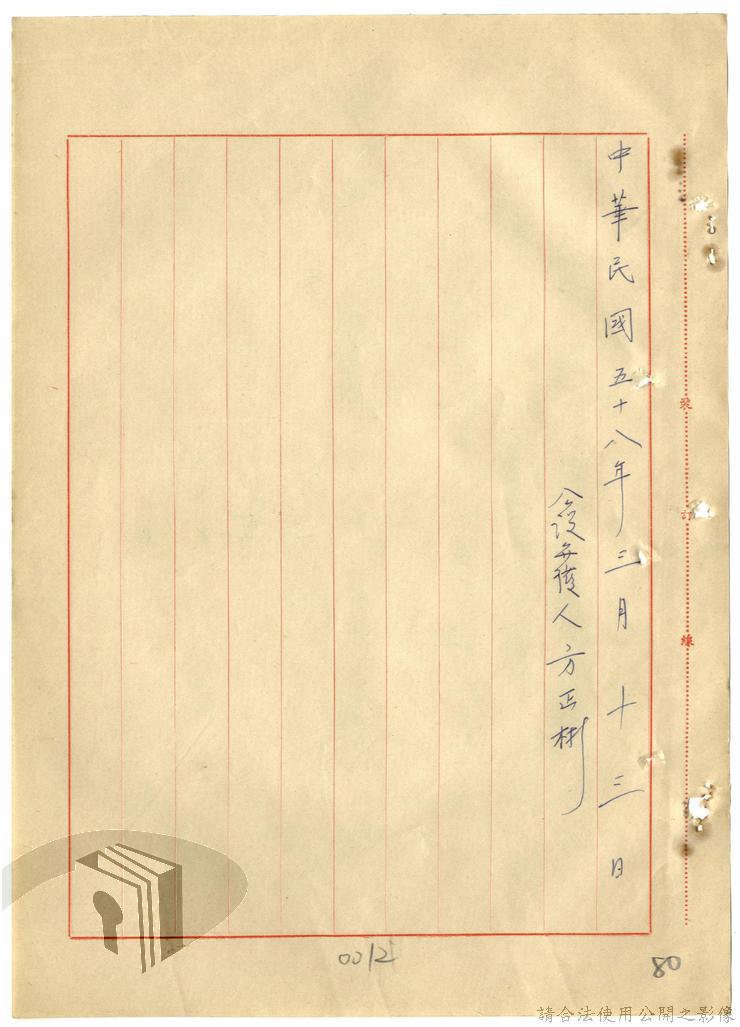 中華民國五十八年三月十三日
公設辯護人方正彬
裝訂線
0012
80
請合法使用公開之影像